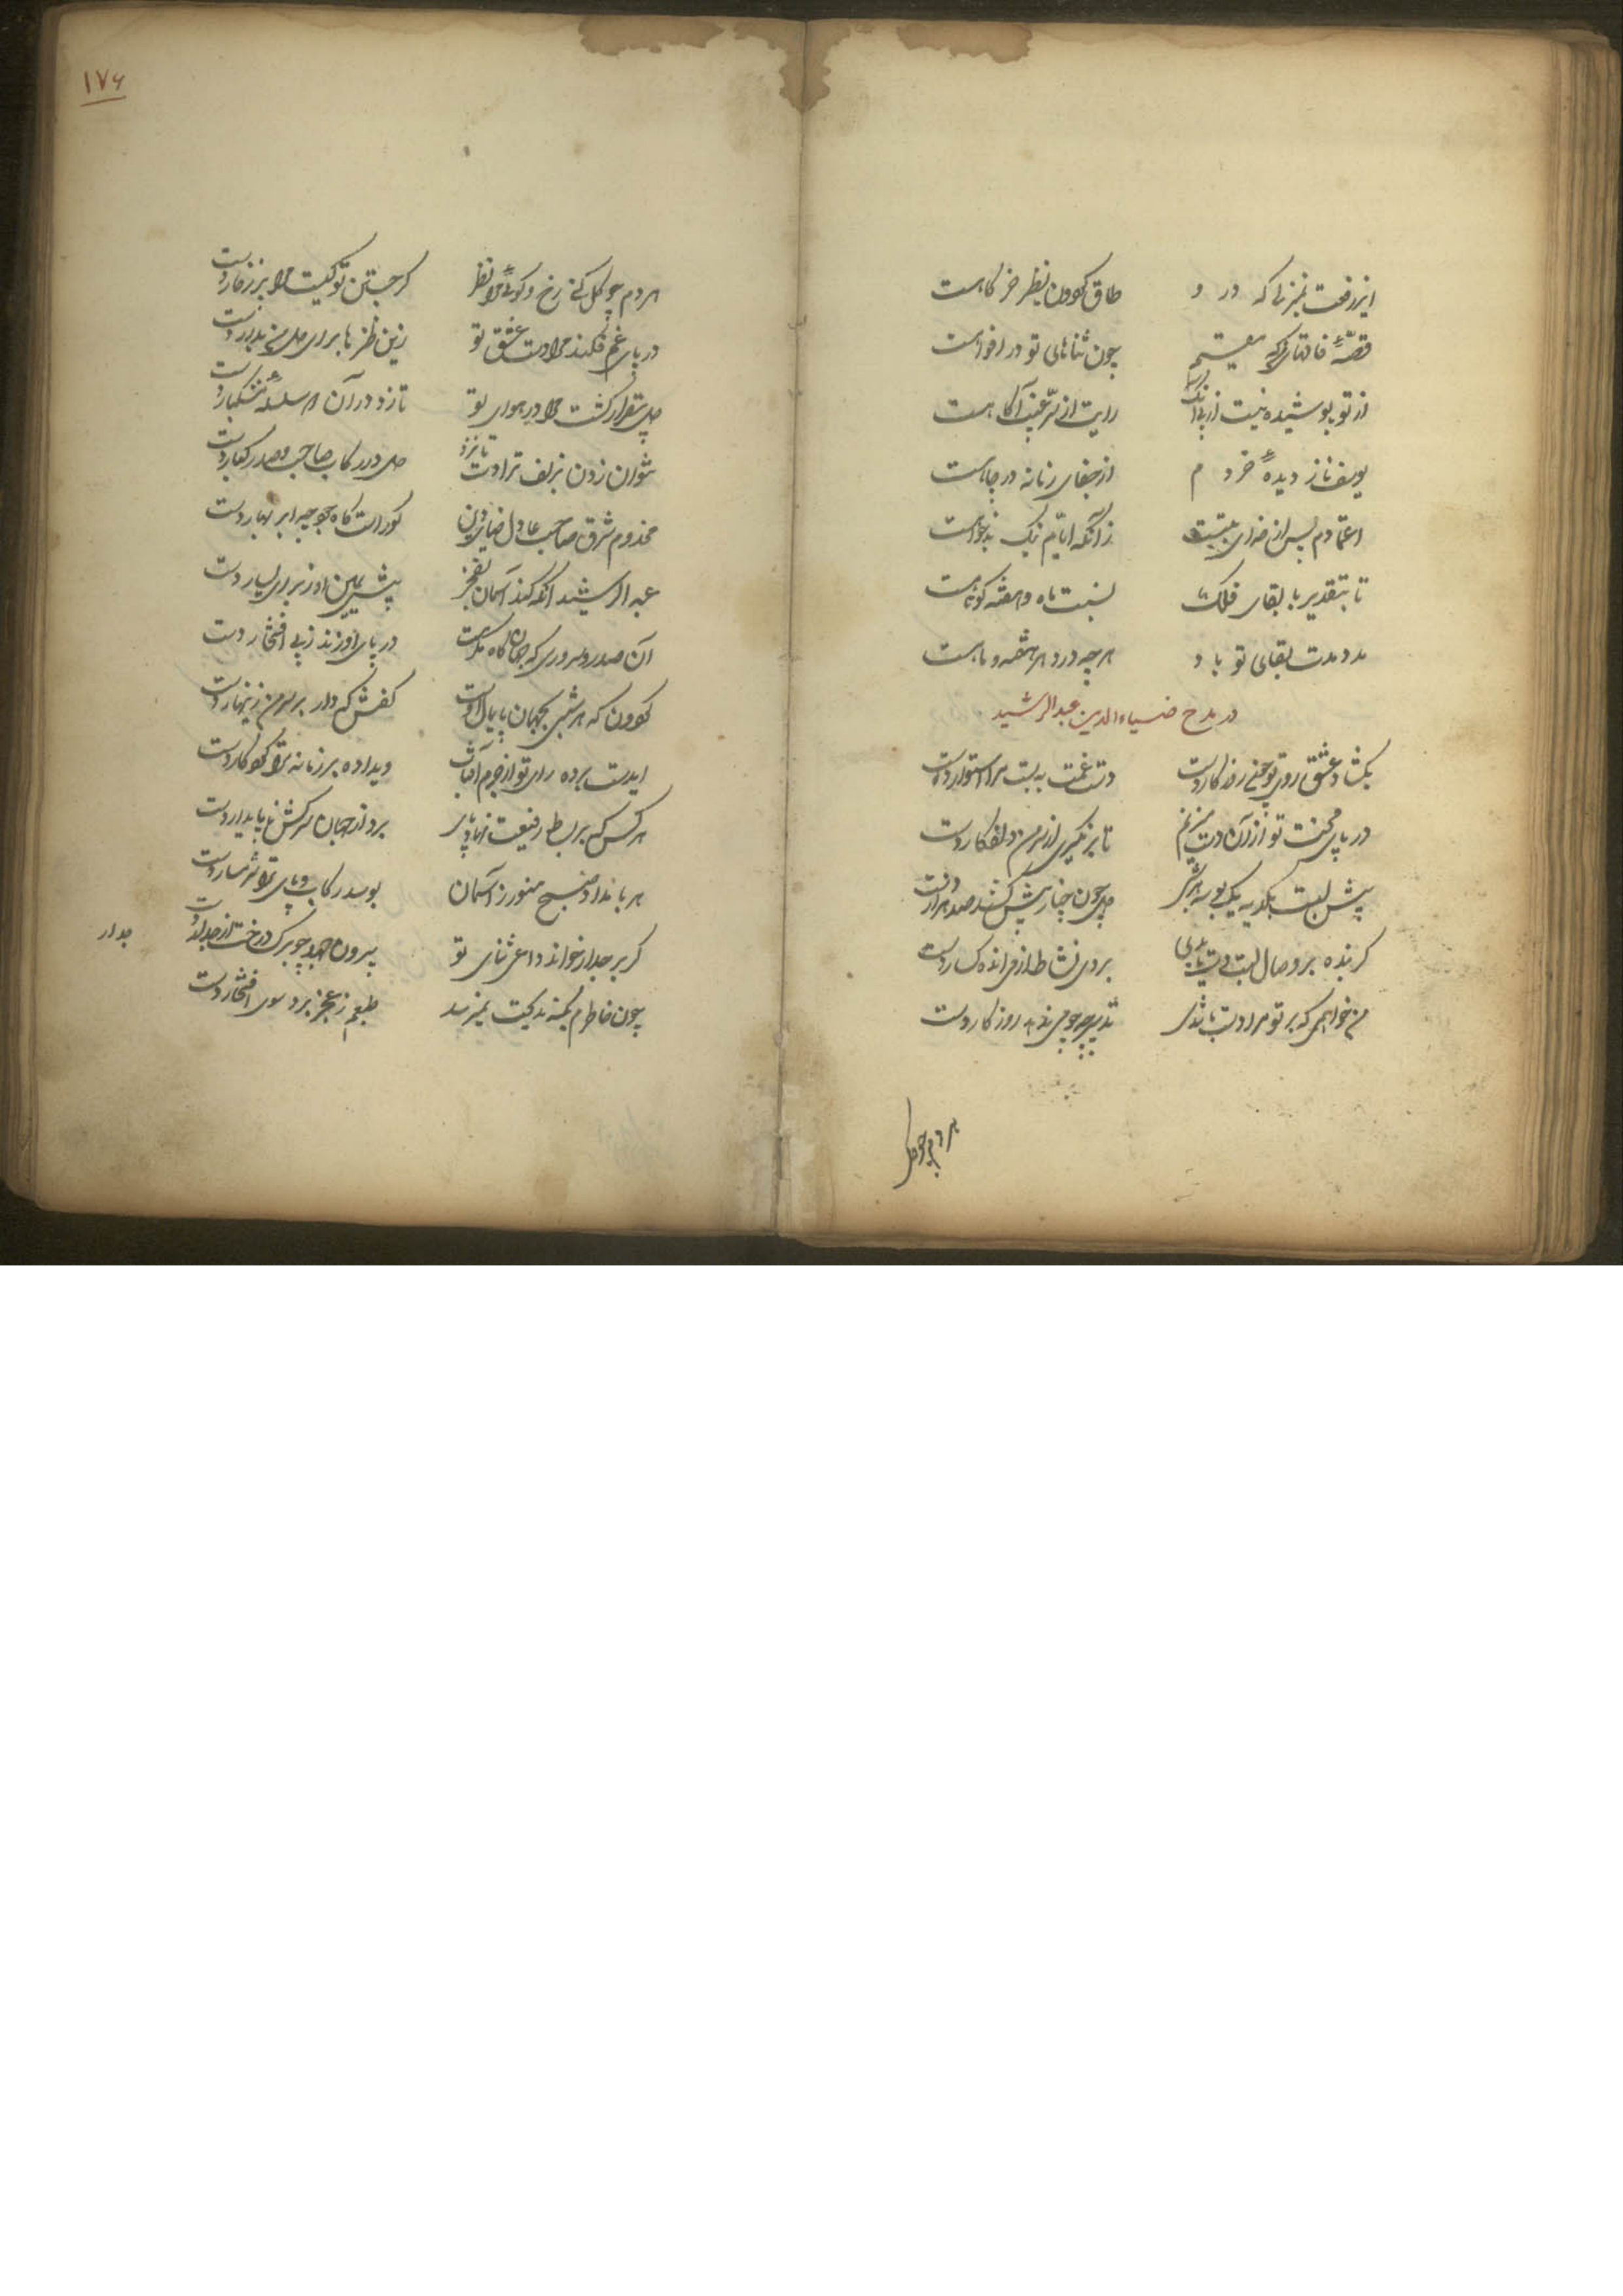 ایزرفعت بمنزلی که در و
طاق گردون نظر خرگاهست
قصهٔ فاقهای که مقیم
چون ثناهای تو در افواهست
از تو پوشیده نیست از پی آنک
رایت از سر غیب آگاهست
یوسف ناز دیدهٔ خردم
از جفای زمانه در چاهست
اعتمادم پس از خدای بتست
زانکه ایام نیک بدخواهست
تا بتقدیر با بقای فلک
نسبت ماه و هفته کوتاهست
مدد مدت بقای تو باد
هرچه در دهر هفته و ماهست
در مدح ضیاءالدین عبدالرشید
بگشاد عشق روی تو چون روزگار دست
دست غمت ببست مرا استوار دست
در پای محنت تو از آن دست میزنم
تا بر نگیری از سر من دلفگار دست
پیش لبت بکدیه یک بوسه هر شبی
چون چنار پیش کشد صد هزار دست
گر بنده بر وصال لبت دست یابدی
بردی نشاط از من انده گسار دست
من خواهمی که بر تو مرا دست باشدی
تدبیر چه چو می‌ندهد روزگار دست
هر دم چو گل
۱۷۶
هر دم چو گل کنی رخ و گوئی مرا نظر
گر جستن تو کیست مرا بر ز خار دست
در پای غم فکند مرا دست عشق تو
زین طنزها برای دل من بدار دست
بیقرار گشت مرا در هوای تو
تا زد در آن سر سلسلهٔ مشکبار دست
نتوان زدن بزلف ترا دست تا نزد
دل در رکاب صاحب و صدر کبار دست
مخدوم شرق صاحب عادل ضیاء دین
کو راست گاه جود چو ابر بهار دست
عبدالرشید آنکه کند آسمان بفخر
پیش یمین او ز برای یسار دست
آن صدر و سروری که جهان گاه مکرمت
در پای او زند ز پی افتخار دست
گردون که هر شبی بجهان پایمال اوست
کفش که دار بر سر من زینهار دست
ای دست برده رای تو از جرم آفتاب
وی داده بر زمانه ترا کردگار دست
هر کس که بر بساط رفیعت نهاد پای
برد از جهان سرکش ناپایدار دست
هر بامداد صبح منور ز آسمان
بوسد رکاب و پای ترا شرمسار دست
گر بر جدار خواند داعی ثنای تو
بیرون جهد چو برگ درخت از جدار دست
جدار
چون خاطرم بکنه مدیحت نمیرسد
طبعم ز عجز برد سوی افتخار دست